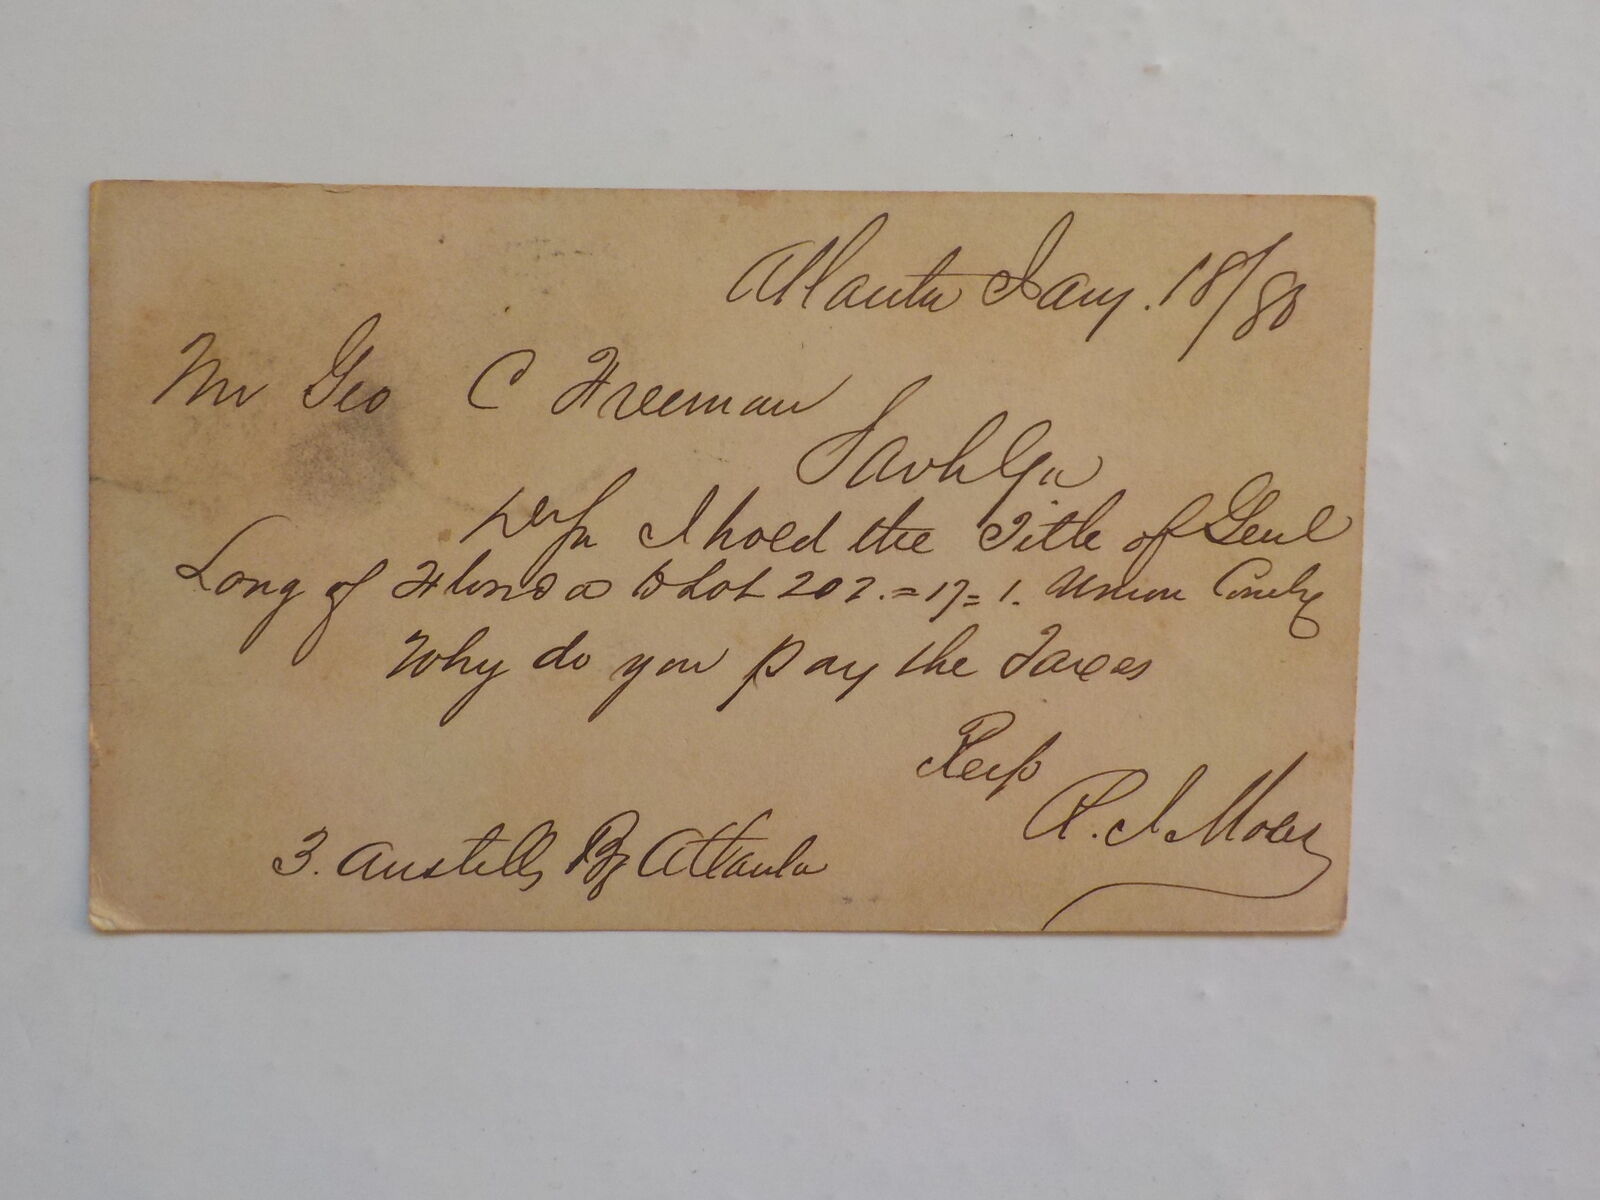 Atlanta Jany. 18/80
Mr Geo C Freeman
Savh Ga
Dr Sir I hold the Title of Genl
Long of Florida to Lot 202.=17=1. Union County
Why do you pay the Taxes
Resp
R. J Moses
3. Austells Bg Atlanta